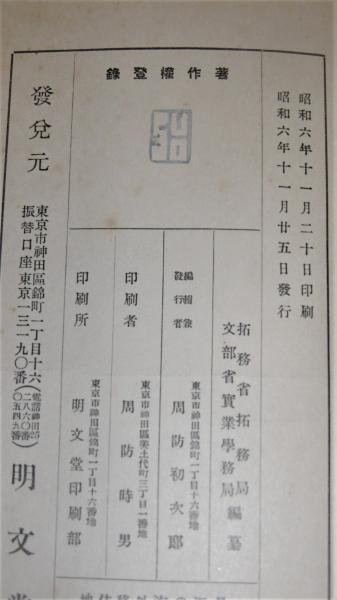 昭和六年十一月二十日印刷
昭和六年十一月廿五日發行
著作權登錄
拓務省拓務局
文部省實業學務局編纂
編輯兼
發行者
東京市神田區錦町一丁目十六番地
周防初次郎
印刷者
東京市神田區美土代町三丁目一番地
周防時男
印刷所
東京市神田區錦町一丁目十六番地
明文堂印刷部
發兌元
東京市神田區錦町一丁目十六(電話神田25二八六〇番〇五四九番)
振替口座東京一三一九〇番
明文堂